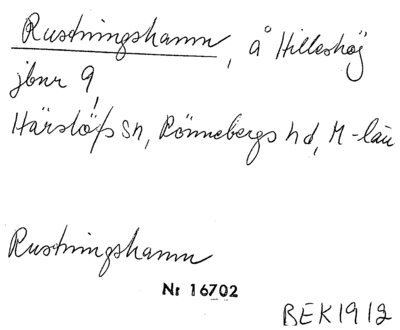 Rustningshamn, å Hilleshög
jbnr 9,
Härslöfs sn, Rönnebergs hd, M-län
Rustningshamn
Nr 16702
BEK1912